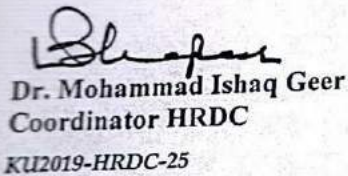 Dr. Mohammad Ishaq Geer
Coordinator HRDC
KU2019-HRDC-25